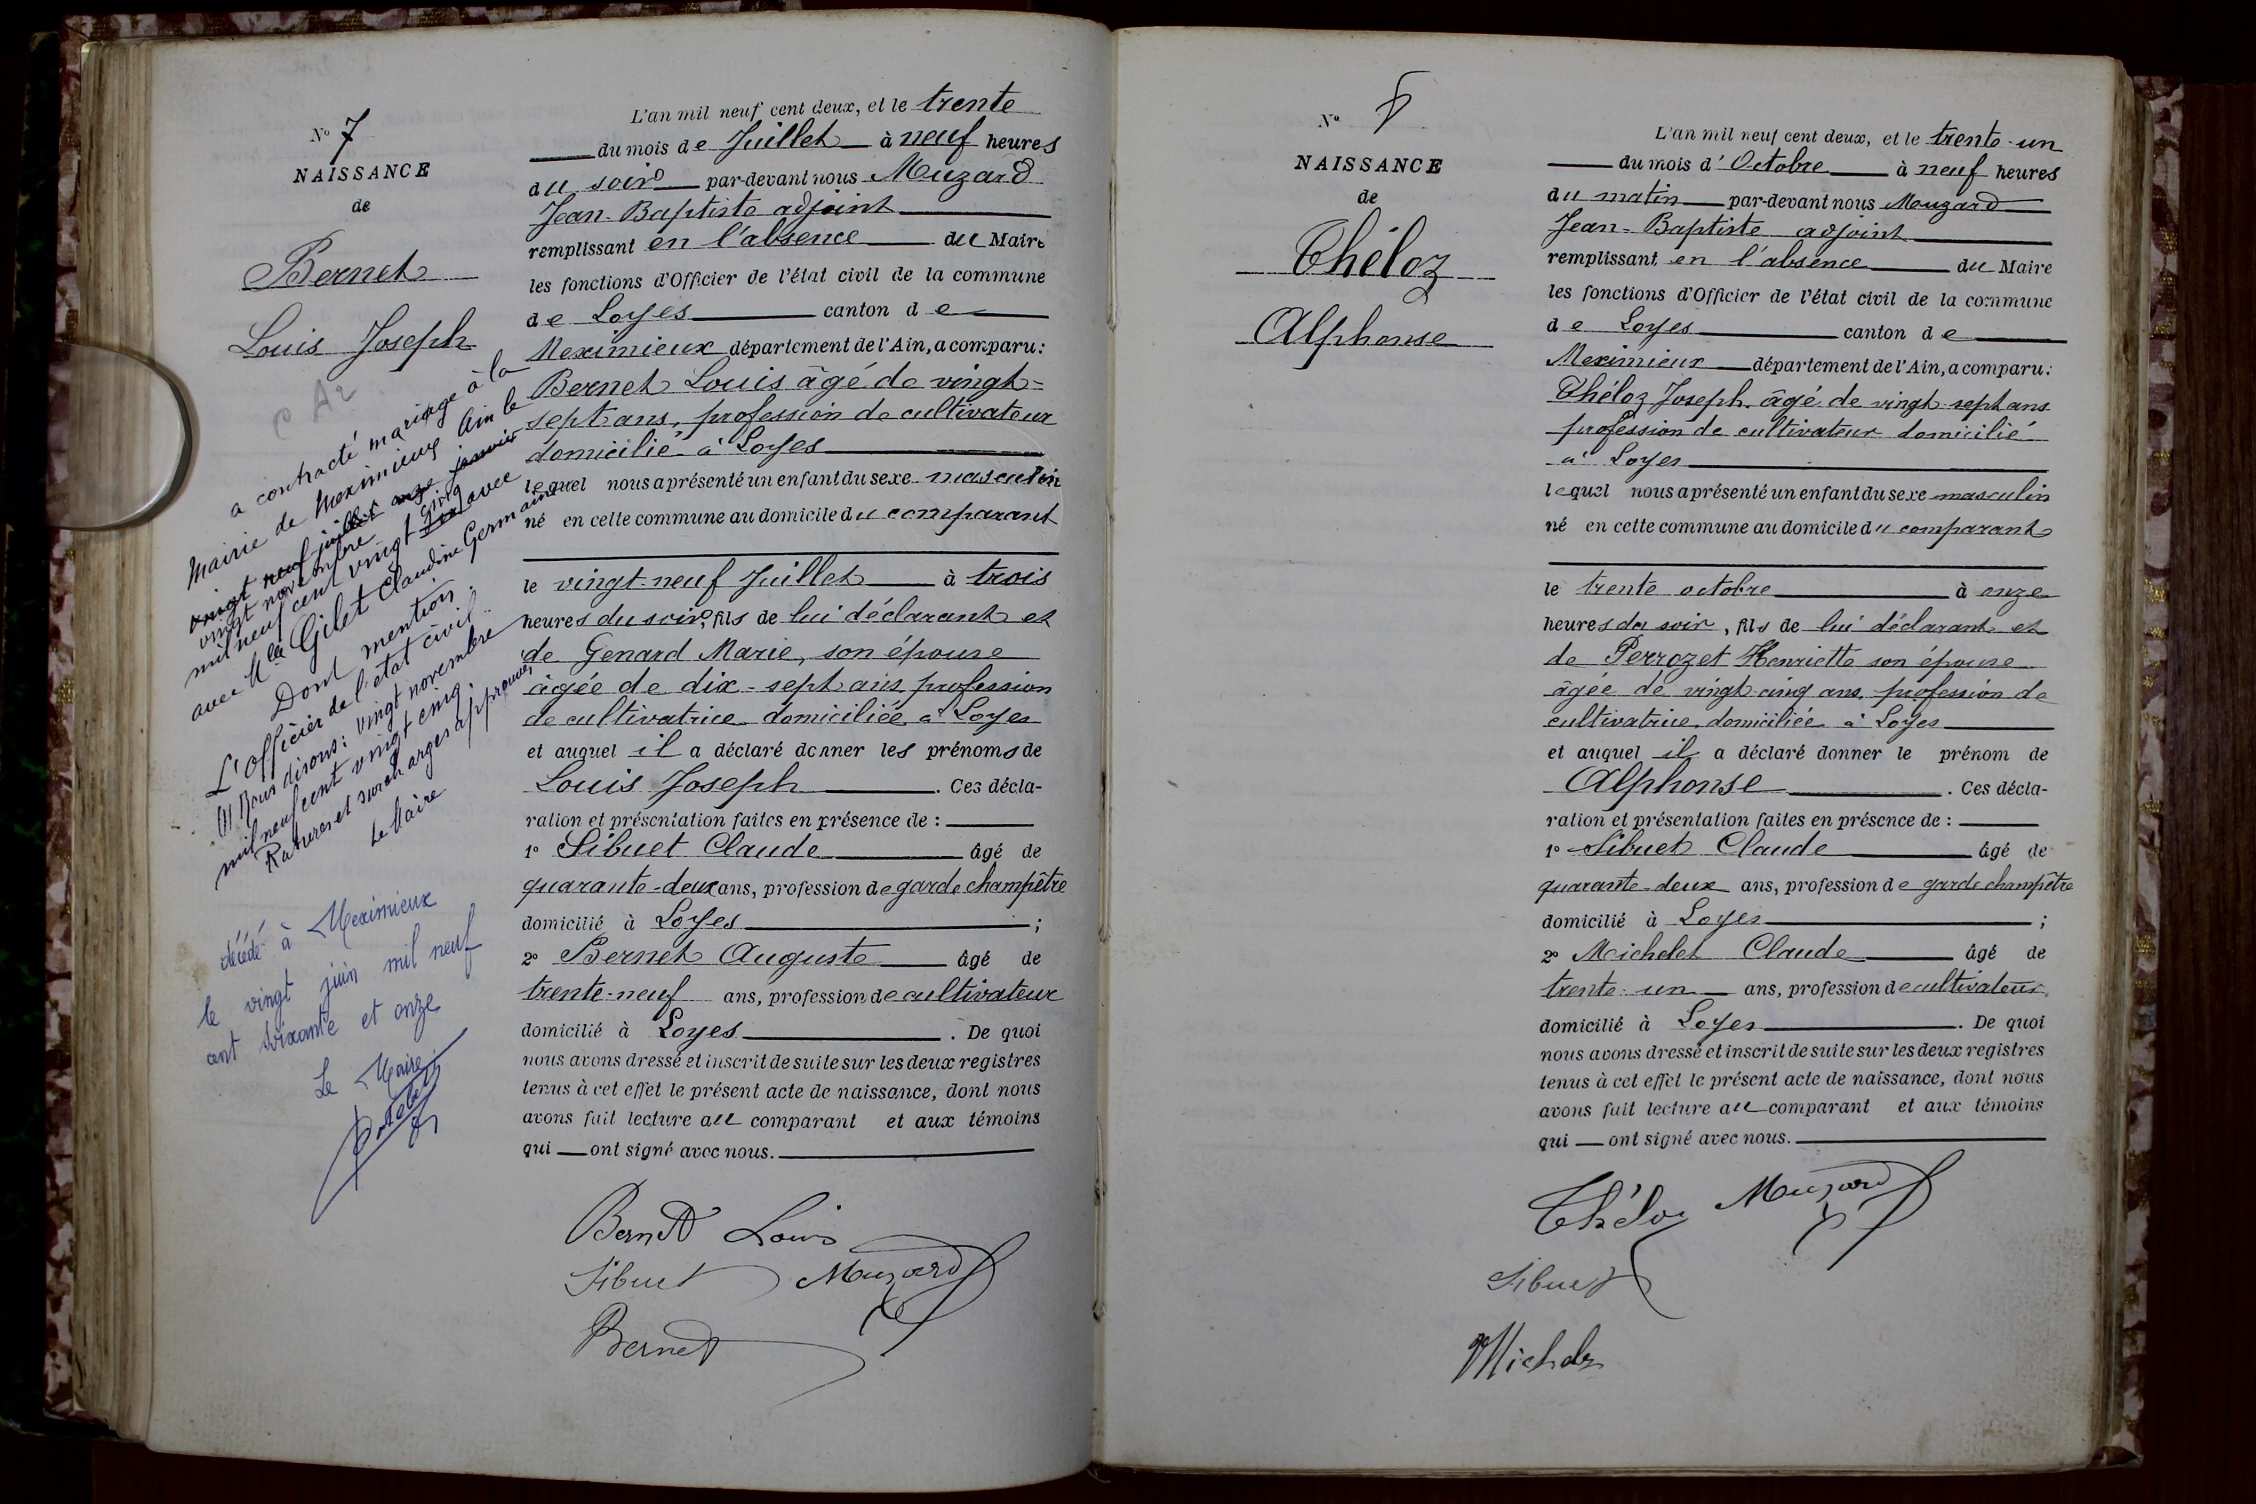 N° 7
NAISSANCE
de
Bernet
Louis Joseph
a contracté mariage à la
Mairie de Meximieux Ain le
vingt neuf juillet onze janvier
vingt novembre
mil neuf cent vingt cinq avec
avec Mlle Gilet Claudine Germaine
Dont mention.
L'officier de l'état civil
(1) Nous disons: vingt novembre
mil neuf cent vingt cinq.
Ratures et surcharges approuvées
Le Maire
décédé à Meximieux
le vingt juin mil neuf
cent soixante et onze
Le Maire
L'an mil neuf cent deux, et le trente
du mois de Juillet à neuf heures
du soir par-devant nous Muzard
Jean-Baptiste adjoint
remplissant en l'absence du Maire
les fonctions d'Officier de l'état civil de la commune
de Loyes canton de
Meximieux département de l'Ain, a comparu:
Bernet Louis âgé de vingt-
sept ans, profession de cultivateur
domicilié à Loyes
lequel nous a présenté un enfant du sexe masculin
né en cette commune au domicile du comparant
le vingt-neuf Juillet à trois
heures du soir, fils de lui déclarant et
de Genard Marie, son épouse
âgée de dix-sept ans, profession
de cultivatrice domiciliée à Loyes
et auquel il a déclaré donner les prénoms de
Louis Joseph. Ces décla-
ration et présentation faites en présence de:
1° Sibuet Claude âgé de
quarante-deux ans, profession de garde champêtre
domicilié à Loyes;
2° Bernet Auguste âgé de
trente-neuf ans, profession de cultivateur
domicilié à Loyes. De quoi
nous avons dressé et inscrit de suite sur les deux registres
tenus à cet effet le présent acte de naissance, dont nous
avons fait lecture au comparant et aux témoins
qui ont signé avec nous.
Bernet Louis
Sibuet Muzard
Bernet
N° 8
NAISSANCE
de
Théloz
Alphonse
L'an mil neuf cent deux, et le trente-un
du mois d'Octobre à neuf heures
du matin par-devant nous Muzard
Jean-Baptiste adjoint
remplissant en l'absence du Maire
les fonctions d'Officier de l'état civil de la commune
de Loyes canton de
Meximieux département de l'Ain, a comparu:
Théloz Joseph âgé de vingt-sept ans
profession de cultivateur domicilié
à Loyes
lequel nous a présenté un enfant du sexe masculin
né en cette commune au domicile du comparant
le trente octobre à onze
heures du soir, fils de lui déclarant et
de Perrozet Henriette son épouse
âgée de vingt-cinq ans, profession de
cultivatrice domiciliée à Loyes
et auquel il a déclaré donner le prénom de
Alphonse. Ces décla-
ration et présentation faites en présence de:
1° Sibuet Claude âgé de
quarante-deux ans, profession de garde champêtre
domicilié à Loyes;
2° Michelet Claude âgé de
trente-un ans, profession de cultivateur
domicilié à Loyes. De quoi
nous avons dressé et inscrit de suite sur les deux registres
tenus à cet effet le présent acte de naissance, dont nous
avons fait lecture au comparant et aux témoins
qui ont signé avec nous.
Théloz Muzard
Sibuet
Michelet